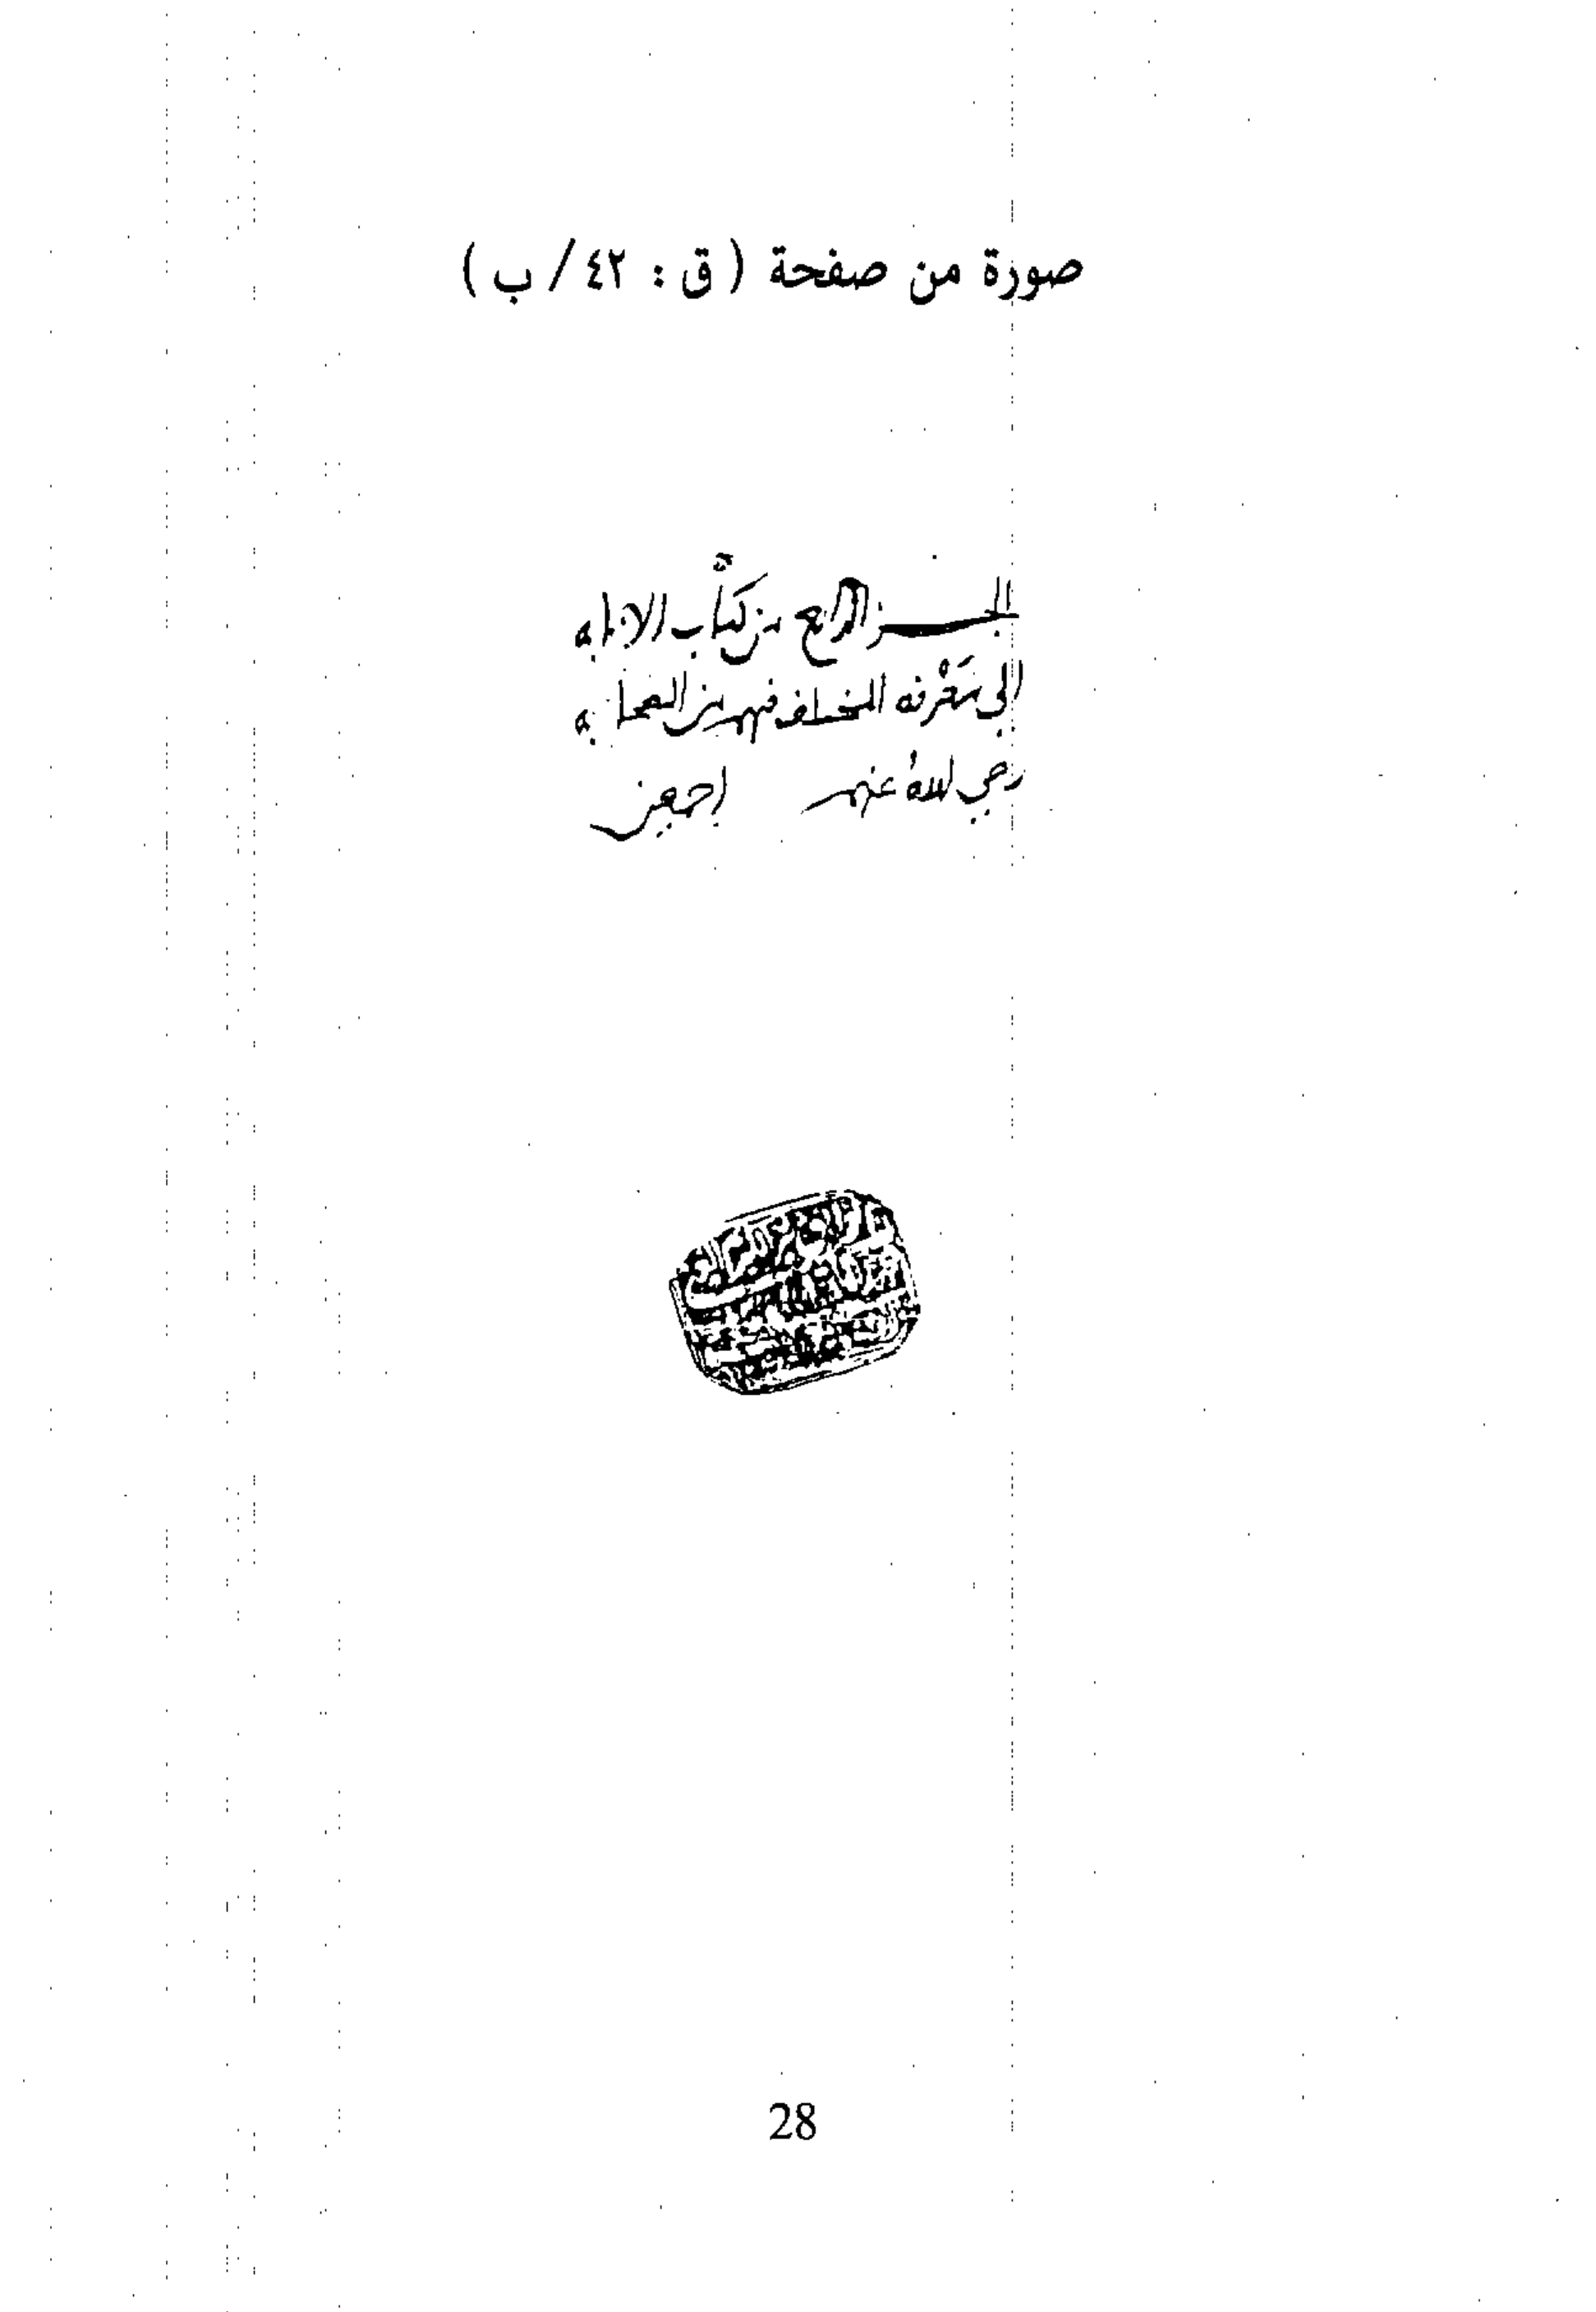 صورة من صفحة ( ق : ٤٢ / ب )
الجـــز الرابع من كتاب الانابه
الى معرفه المختلف فيهم من الصحابه
رضي الله عنهم اجمعين
28